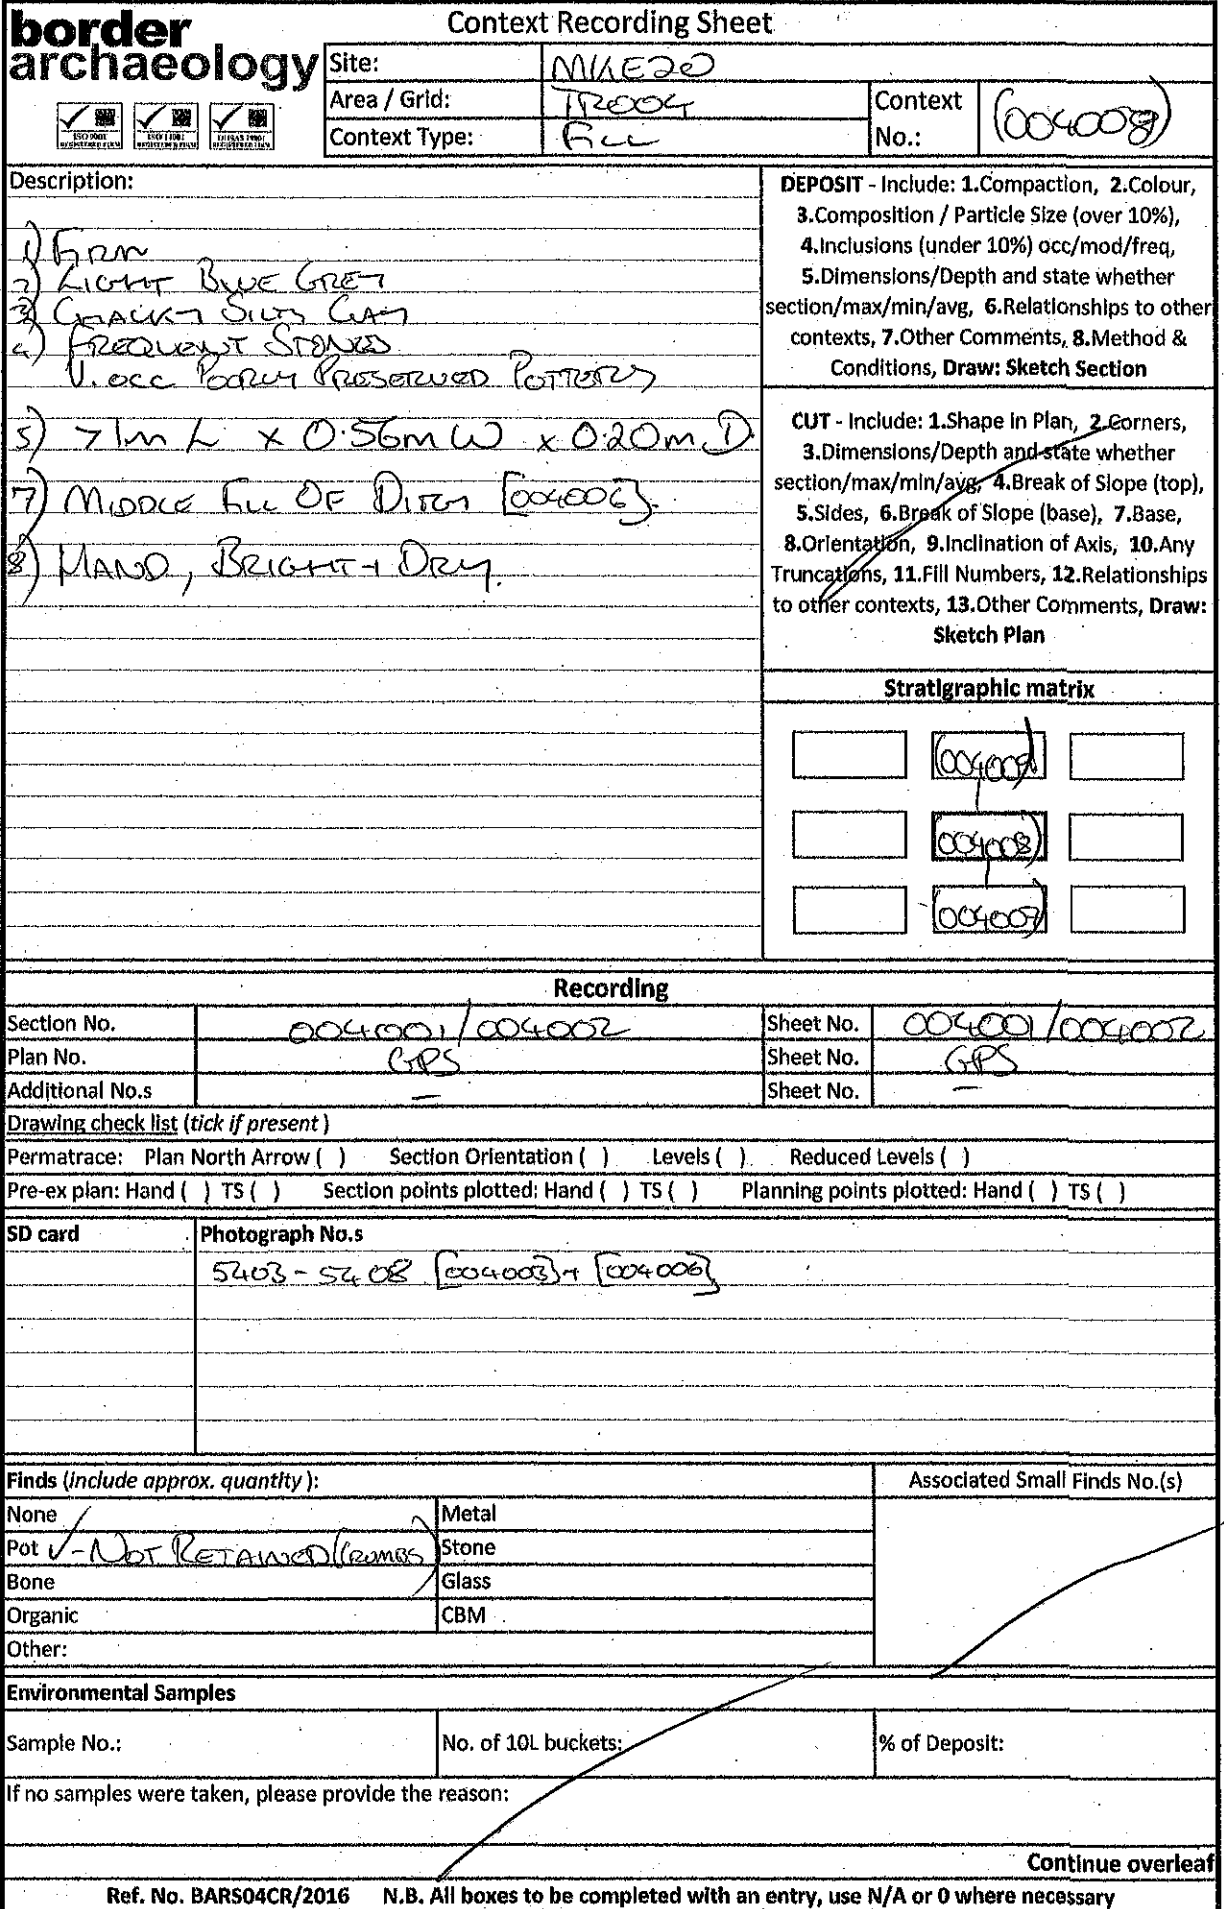 border
archaeology
Context Recording Sheet
Site: MKE20
Area / Grid: TR004
Context Type: FILL
Context No.: (004008)
ISO 9001 REGISTERED FIRM
ISO 14001 REGISTERED FIRM
OHSAS 18001 REGISTERED FIRM
Description:
1) FIRM
2) LIGHT BLUE GREY
3) CHALKY SILTY CLAY
4) FREQUENT STONES
V. OCC POORLY PRESERVED POTTERY
5) >1m L x 0.56m W x 0.20m D.
7) MIDDLE FILL OF DITCH [004006].
8) HAND, BRIGHT + DRY.
DEPOSIT - Include: 1.Compaction, 2.Colour,
3.Composition / Particle Size (over 10%),
4.Inclusions (under 10%) occ/mod/freq,
5.Dimensions/Depth and state whether
section/max/min/avg, 6.Relationships to other
contexts, 7.Other Comments, 8.Method &
Conditions, Draw: Sketch Section
CUT - Include: 1.Shape in Plan, 2.Corners,
3.Dimensions/Depth and state whether
section/max/min/avg, 4.Break of Slope (top),
5.Sides, 6.Break of Slope (base), 7.Base,
8.Orientation, 9.Inclination of Axis, 10.Any
Truncations, 11.Fill Numbers, 12.Relationships
to other contexts, 13.Other Comments, Draw:
Sketch Plan
Stratigraphic matrix
(004009)
(004008)
(004007)
Recording
Section No. 004001/004002 Sheet No. 004001/004002
Plan No. GPS Sheet No. GPS
Additional No.s — Sheet No. —
Drawing check list (tick if present)
Permatrace: Plan North Arrow ( ) Section Orientation ( ) Levels ( ) Reduced Levels ( )
Pre-ex plan: Hand ( ) TS ( ) Section points plotted: Hand ( ) TS ( ) Planning points plotted: Hand ( ) TS ( )
SD card Photograph No.s
5403 - 5408 [004003] + [004006]
Finds (include approx. quantity):
Associated Small Finds No.(s)
None Metal
Pot ✓ - NOT RETAINED (CRUMBS) Stone
Bone Glass
Organic CBM
Other:
Environmental Samples
Sample No.: No. of 10L buckets: % of Deposit:
If no samples were taken, please provide the reason:
Continue overleaf
Ref. No. BARS04CR/2016 N.B. All boxes to be completed with an entry, use N/A or 0 where necessary